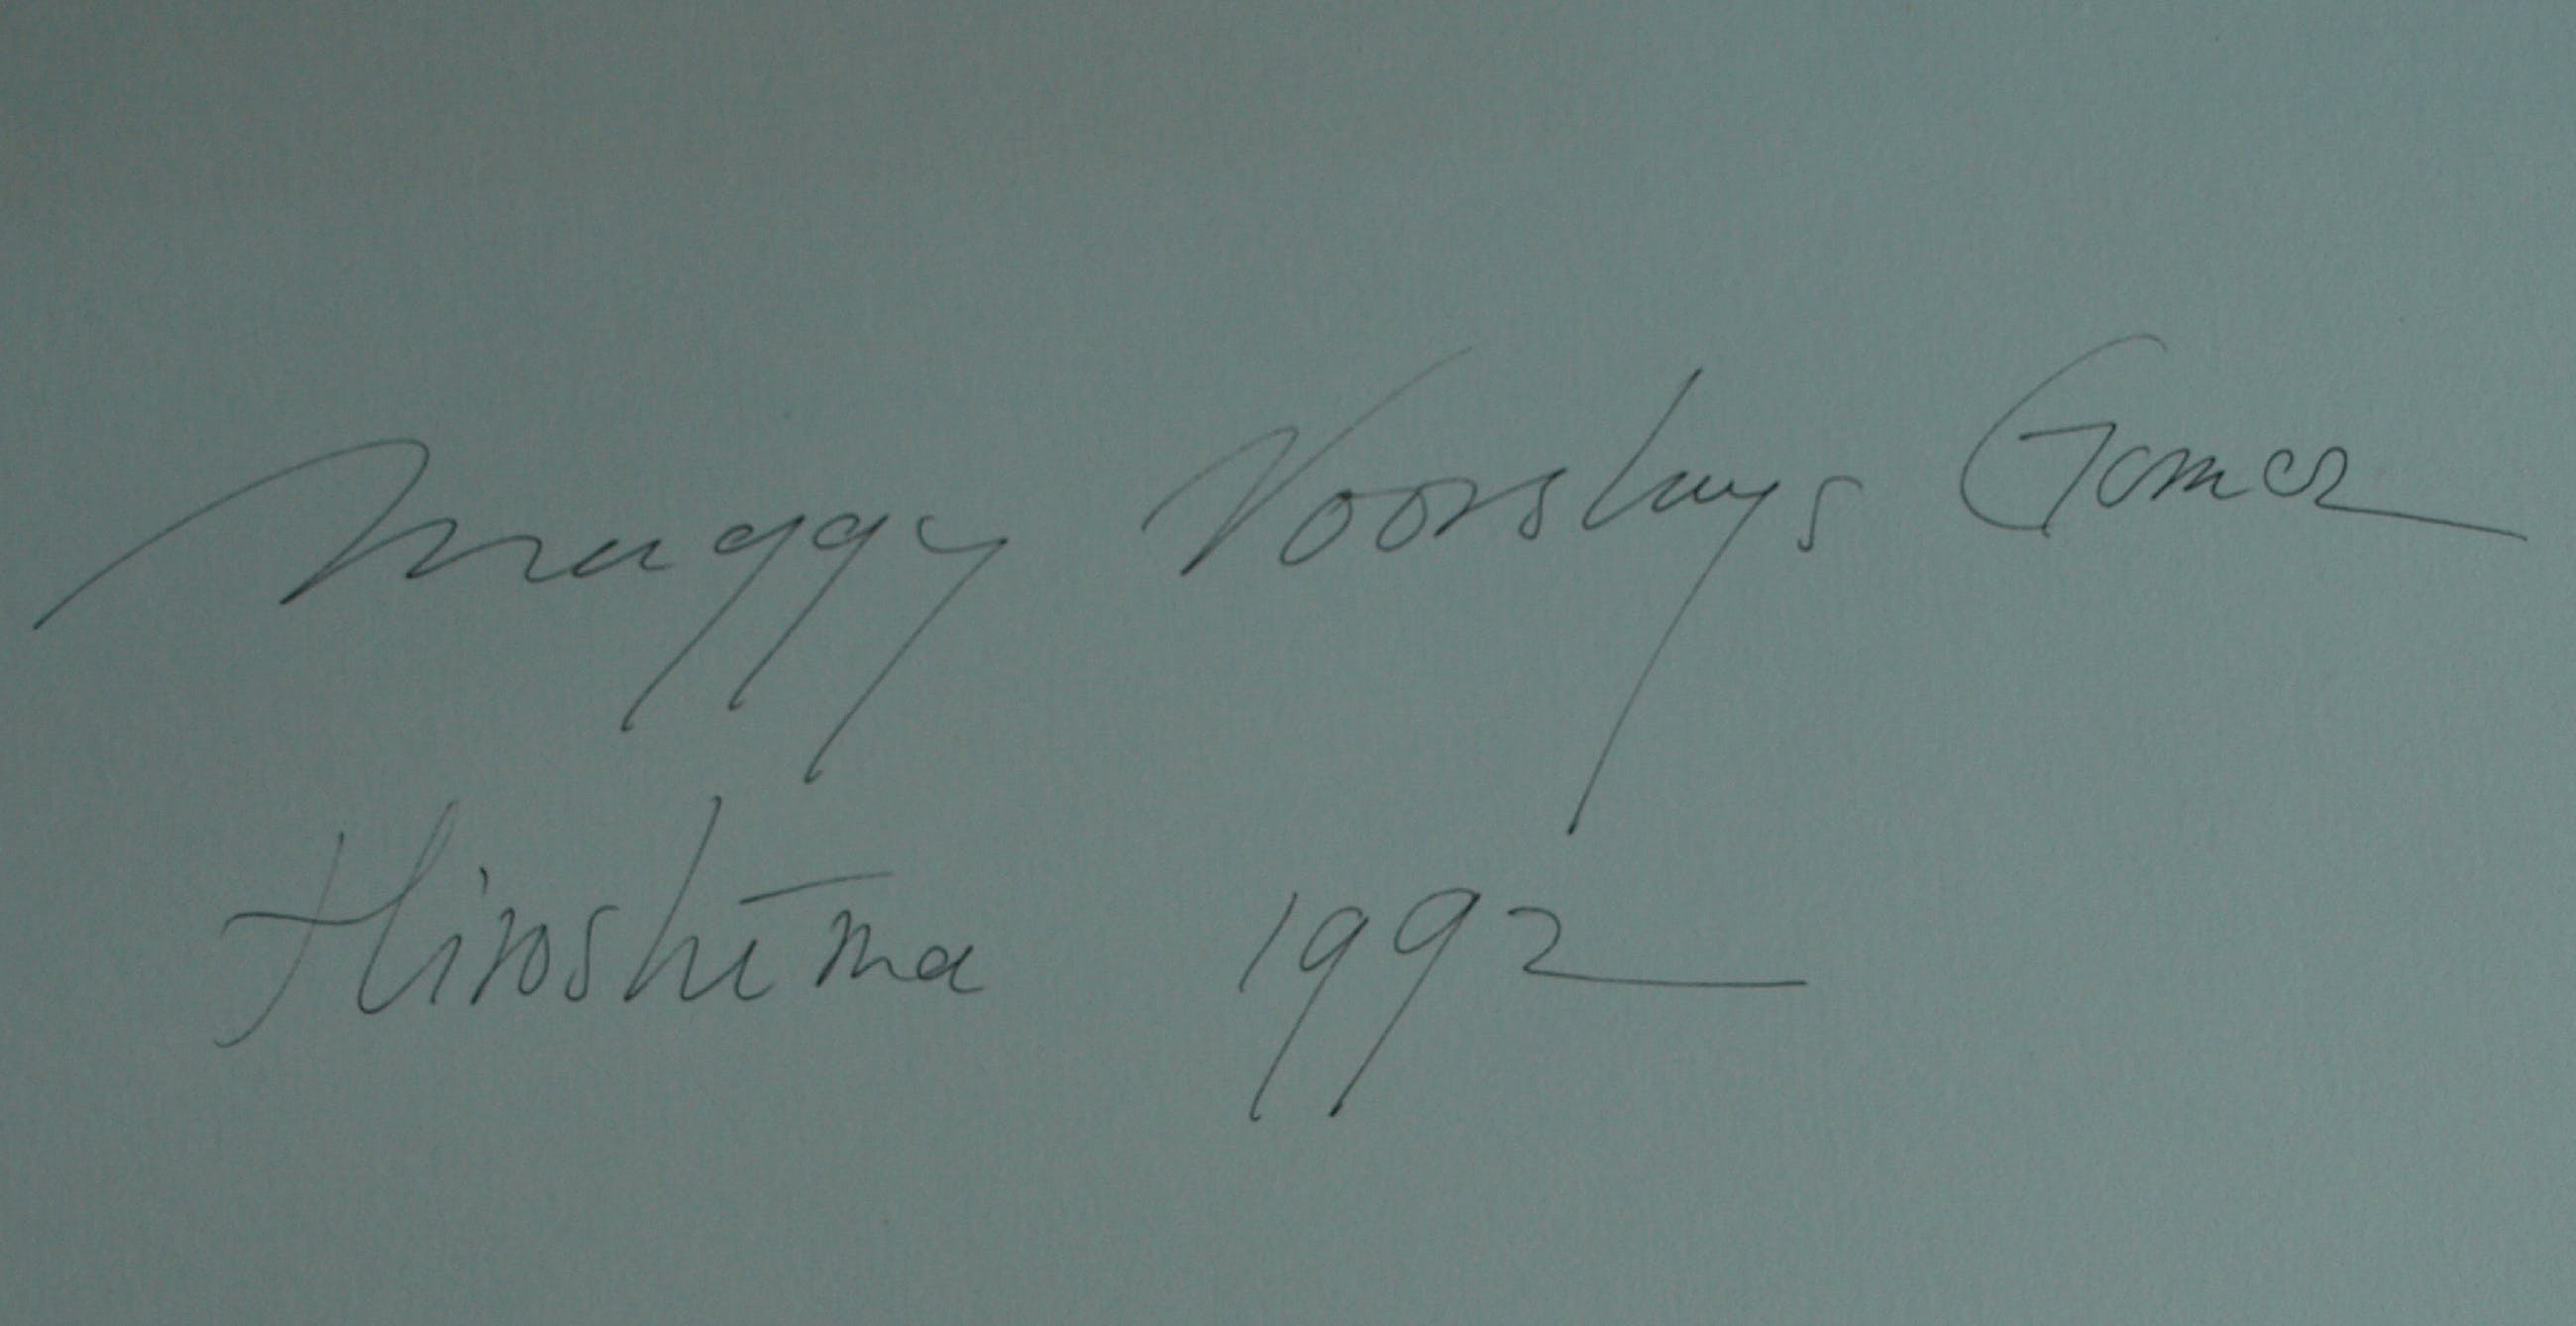 Maggy Voorsluys Gomez
Hiroshima 1992